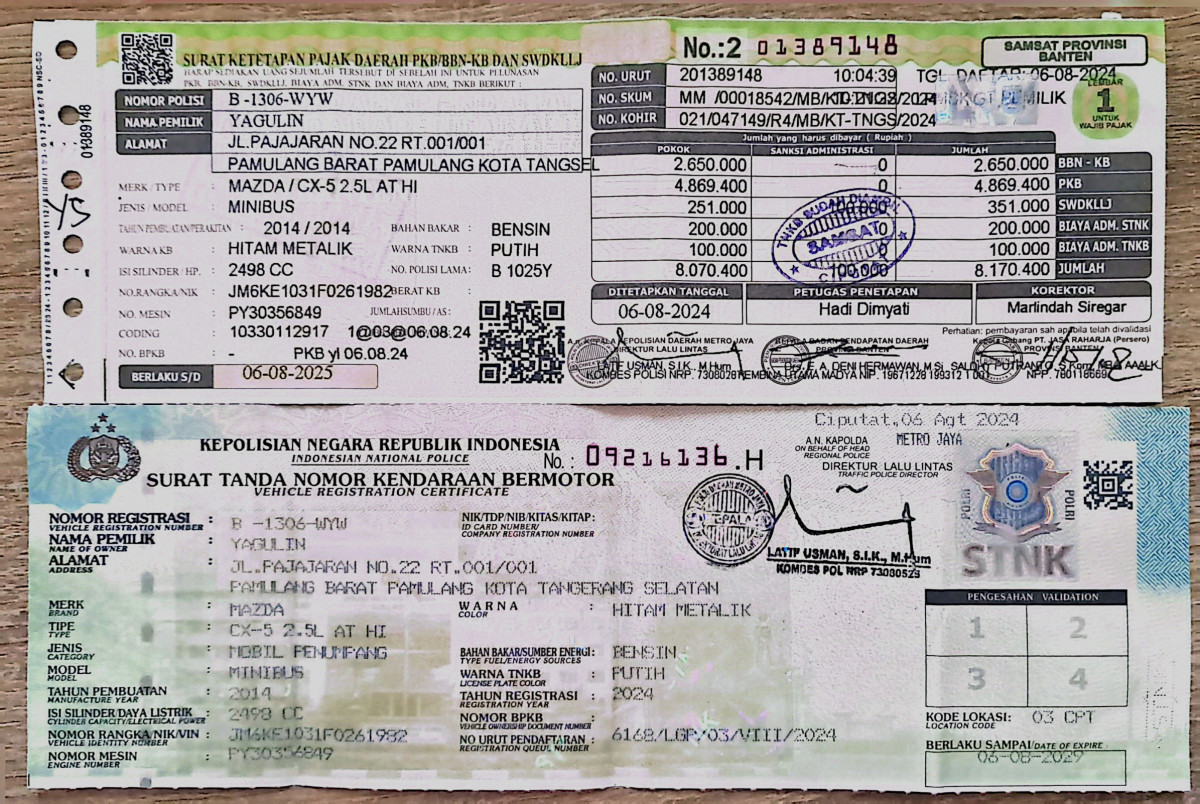 SURAT KETETAPAN PAJAK DAERAH PKB/BBN-KB DAN SWDKLLJ
HARAP SEDIAKAN UANG SEJUMLAH TERSEBUT DI SEBELAH INI UNTUK PELUNASAN
PKB, BBN-KB, SWDKLLJ, BIAYA ADM. STNK DAN BIAYA ADM, TNKB BERIKUT :
No.:2 01389148
SAMSAT PROVINSI
BANTEN
NO. URUT 201389148 10:04:39 TGL. DAFTAR: 06-08-2024
NO. SKUM MM /00018542/MB/KT-TNGS/2024 PEMILIK
NO. KOHIR 021/047149/R4/MB/KT-TNGS/2024
LEMBAR
1
UNTUK
WAJIB PAJAK
01389148
NOMOR POLISI B -1306-WYW
NAMA PEMILIK YAGULIN
ALAMAT JL.PAJAJARAN NO.22 RT.001/001
PAMULANG BARAT PAMULANG KOTA TANGSEL
MERK / TYPE : MAZDA / CX-5 2.5L AT HI
JENIS / MODEL : MINIBUS
TAHUN PEMBUATAN/PERAKITAN : 2014 / 2014 BAHAN BAKAR : BENSIN
WARNA KB : HITAM METALIK WARNA TNKB : PUTIH
ISI SILINDER / HP. : 2498 CC NO. POLISI LAMA : B 1025Y
NO.RANGKA/NIK : JM6KE1031F0261982 BERAT KB :
NO. MESIN : PY30356849 JUMLAHSUMBU / AS :
CODING : 10330112917 1@03@06.08.24
NO. BPKB : - PKB yl 06.08.24
BERLAKU S/D 06-08-2025
Jumlah yang harus dibayar ( Rupiah )
POKOK SANKSI ADMINISTRASI JUMLAH
2.650.000 0 2.650.000 BBN - KB
4.869.400 0 4.869.400 PKB
251.000 100.000 351.000 SWDKLLJ
200.000 0 200.000 BIAYA ADM. STNK
100.000 0 100.000 BIAYA ADM. TNKB
8.070.400 100.000 8.170.400 JUMLAH
TNKB SUDAH DIAMBIL
SAMSAT
DITETAPKAN TANGGAL PETUGAS PENETAPAN KOREKTOR
06-08-2024 Hadi Dimyati Marlindah Siregar
Perhatian: pembayaran sah apabila telah divalidasi
A.N. KEPALA KEPOLISIAN DAERAH METRO JAYA
DIREKTUR LALU LINTAS
KEPALA BADAN PENDAPATAN DAERAH
PROVINSI BANTEN
Kepala Cabang PT. JASA RAHARJA (Persero)
PROVINSI BANTEN
LATIF USMAN, S.I.K., M.Hum
KOMBES POLISI NRP.
DENI HERMAWAN, M.Si
PEMBINA UTAMA MADYA NIP. 19671228 199312 1 001
NPP.
KEPOLISIAN NEGARA REPUBLIK INDONESIA
INDONESIAN NATIONAL POLICE
No. : 09216136 .H
SURAT TANDA NOMOR KENDARAAN BERMOTOR
VEHICLE REGISTRATION CERTIFICATE
Ciputat,06 Agt 2024
A.N. KAPOLDA METRO JAYA
ON BEHALF OF HEAD
REGIONAL POLICE
DIREKTUR LALU LINTAS
TRAFFIC POLICE DIRECTOR
LATIF USMAN, S.I.K., M.Hum
KOMBES POL NRP 73080529
POLRI
POLRI
STNK
NOMOR REGISTRASI : B -1306-WYW
VEHICLE REGISTRATION NUMBER
NIK/TDP/NIB/KITAS/KITAP:
ID CARD NUMBER/
COMPANY REGISTRATION NUMBER
NAMA PEMILIK : YAGULIN
NAME OF OWNER
ALAMAT : JL.PAJAJARAN NO.22 RT.001/001
ADDRESS
PAMULANG BARAT PAMULANG KOTA TANGERANG SELATAN
MERK : MAZDA
BRAND
WARNA : HITAM METALIK
COLOR
TIPE : CX-5 2.5L AT HI
TYPE
JENIS : MOBIL PENUMPANG
CATEGORY
BAHAN BAKAR/SUMBER ENERGI : BENSIN
TYPE FUEL/ENERGY SOURCES
MODEL : MINIBUS
MODEL
WARNA TNKB : PUTIH
LICENSE PLATE COLOR
TAHUN PEMBUATAN : 2014
MANUFACTURE YEAR
TAHUN REGISTRASI : 2024
REGISTRATION YEAR
ISI SILINDER/DAYA LISTRIK : 2498 CC
CYLINDER CAPACITY/ELECTRICAL POWER
NOMOR BPKB :
VEHICLE OWNERSHIP DOCUMENT NUMBER
NOMOR RANGKA/NIK/VIN : JM6KE1031F0261982
VEHICLE IDENTITY NUMBER
NO URUT PENDAFTARAN : 6168/LGP/03/VIII/2024
REGISTRATION QUEUE NUMBER
NOMOR MESIN : PY30356849
ENGINE NUMBER
PENGESAHAN VALIDATION
1 2
3 4
KODE LOKASI: 03 CPT
LOCATION CODE
BERLAKU SAMPAI/DATE OF EXPIRE :
06-08-2029